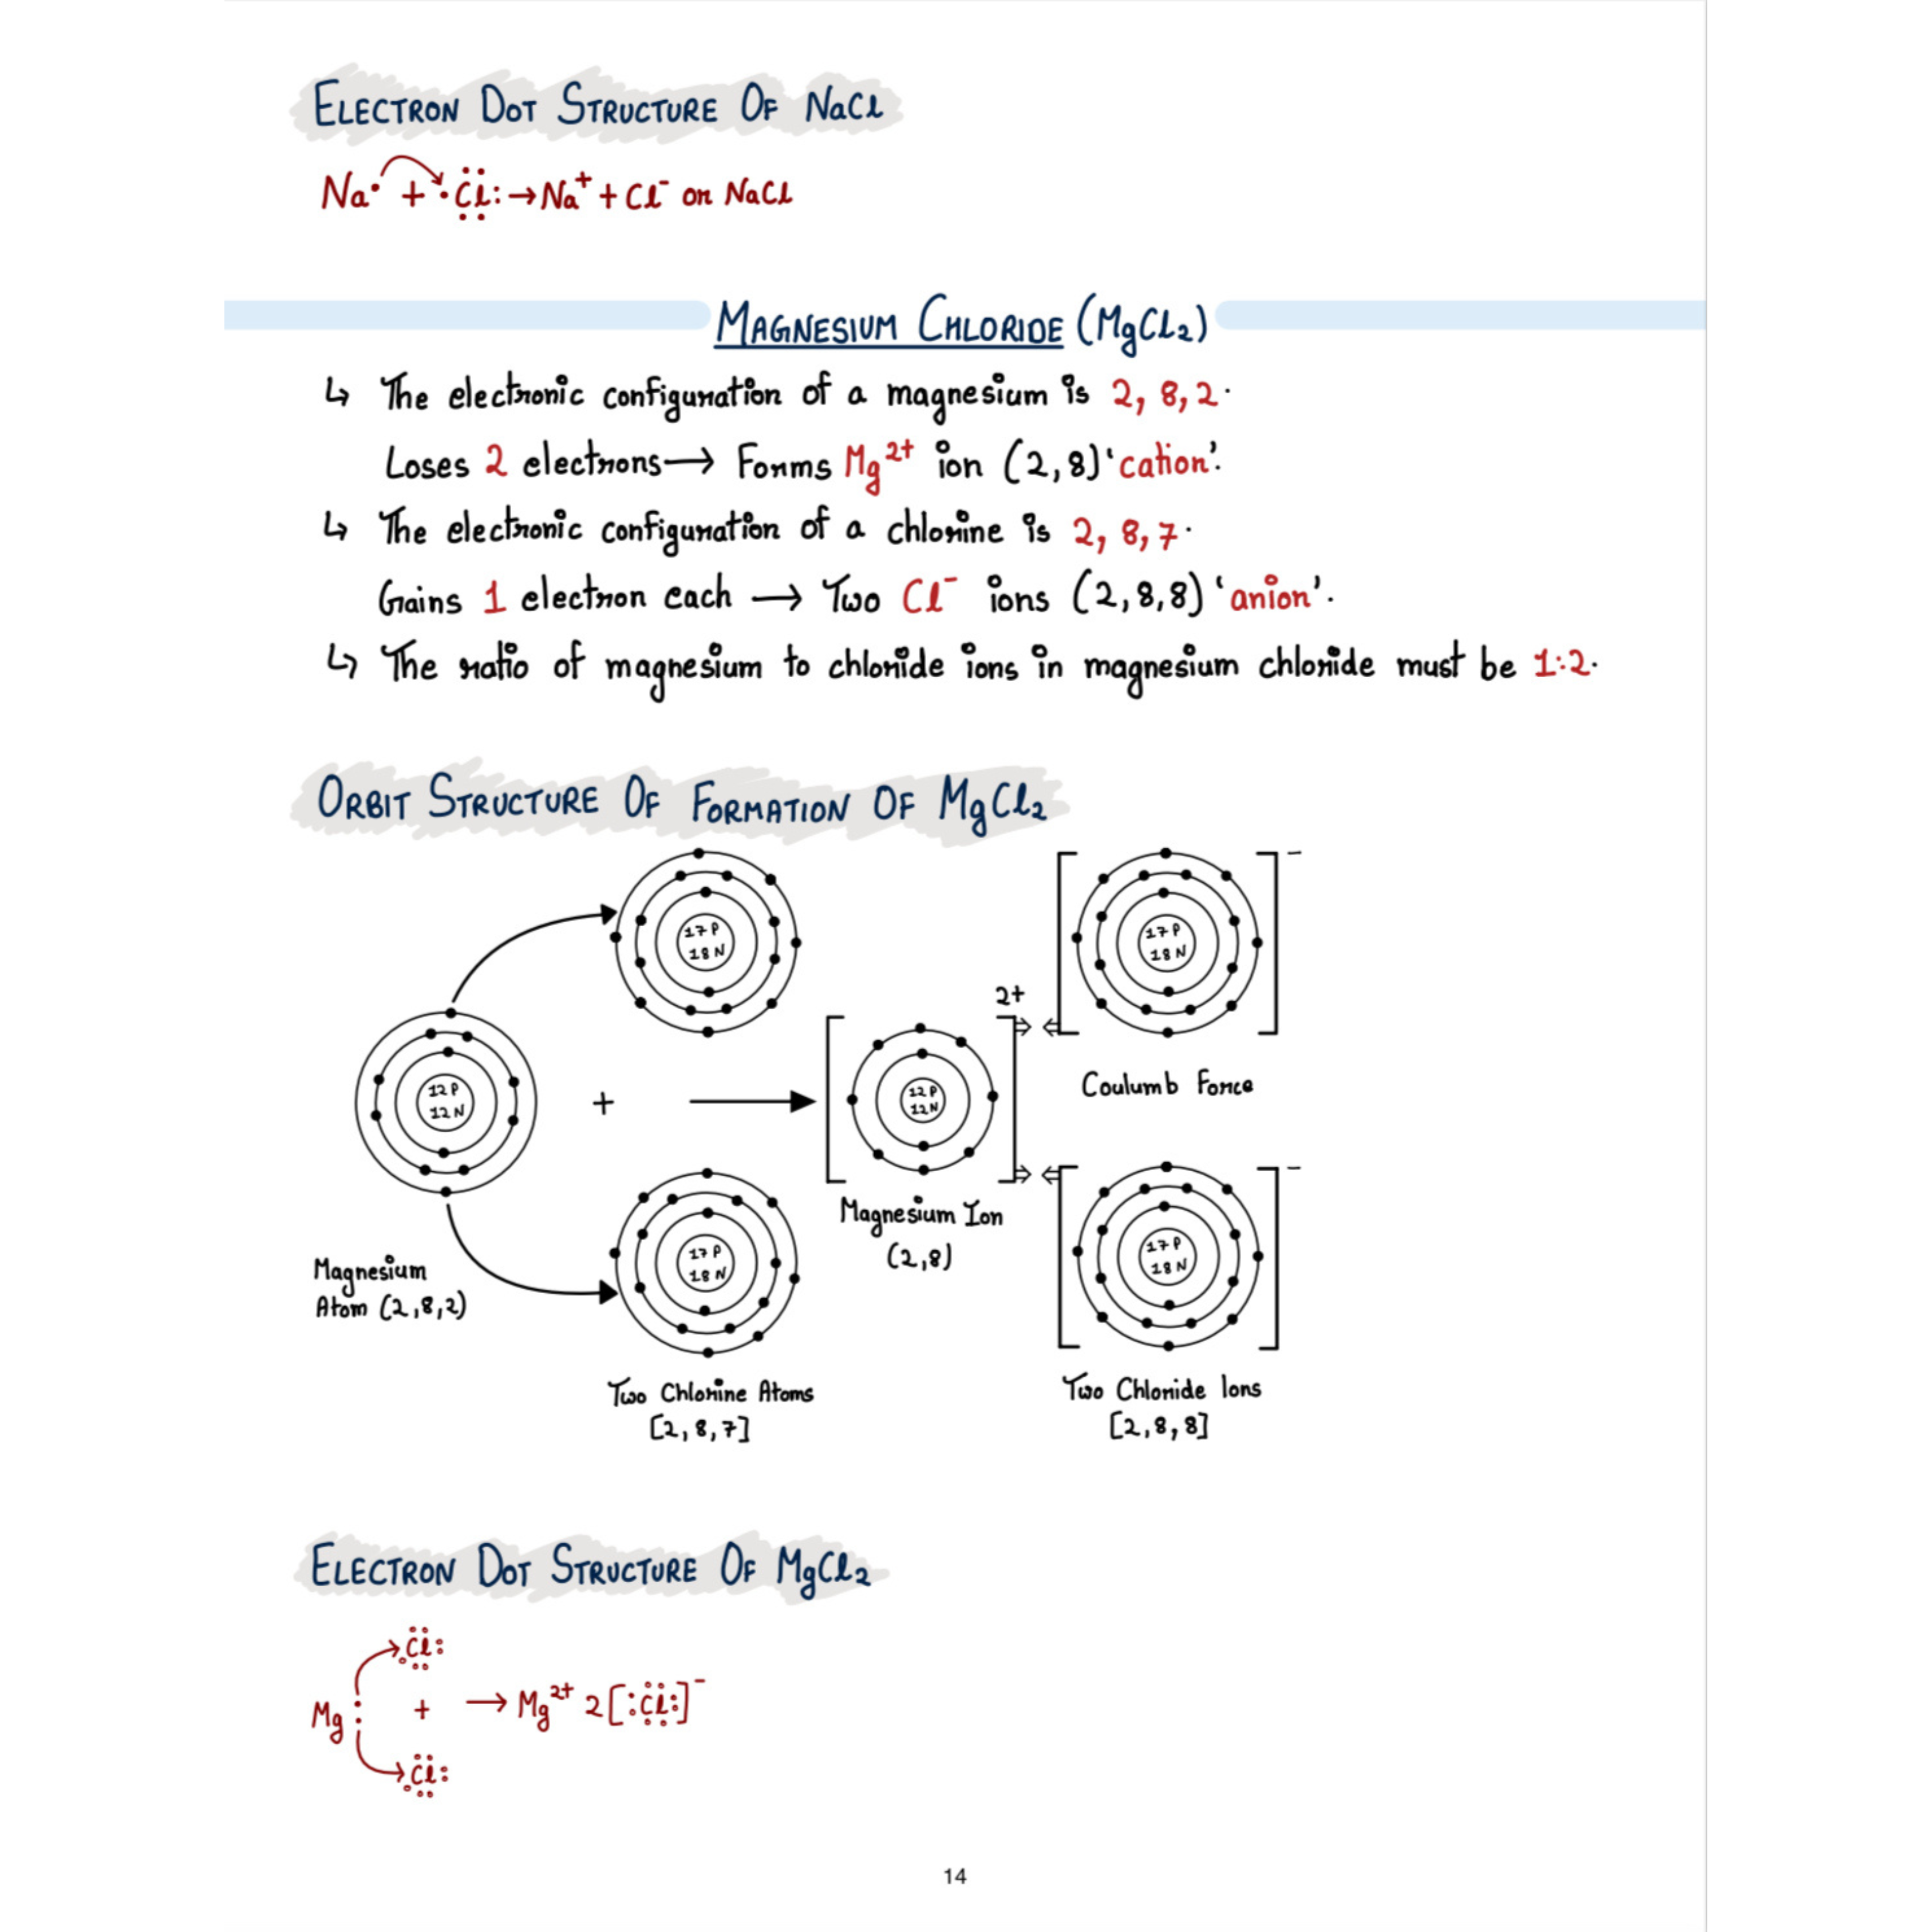 ELECTRON DOT STRUCTURE OF NaCl
Na• + •Cl: → Na⁺ + Cl⁻ or NaCl
MAGNESIUM CHLORIDE (MgCl₂)
↳ The electronic configuration of a magnesium is 2, 8, 2.
Loses 2 electrons → Forms Mg²⁺ ion (2,8) 'cation'.
↳ The electronic configuration of a chlorine is 2, 8, 7.
Gains 1 electron each → Two Cl⁻ ions (2,8,8) 'anion'.
↳ The ratio of magnesium to chloride ions in magnesium chloride must be 1:2.
ORBIT STRUCTURE OF FORMATION OF MgCl₂
17 P
18 N
17 P
18 N
2+
−
12 P
12 N
+
12 P
12 N
Coulumb Force
17 P
18 N
17 P
18 N
−
Magnesium Ion
(2,8)
Magnesium
Atom (2,8,2)
Two Chlorine Atoms
[2,8,7]
Two Chloride Ions
[2,8,8]
ELECTRON DOT STRUCTURE OF MgCl₂
Cl:
Mg: + → Mg²⁺ 2[:Cl:]⁻
Cl:
14